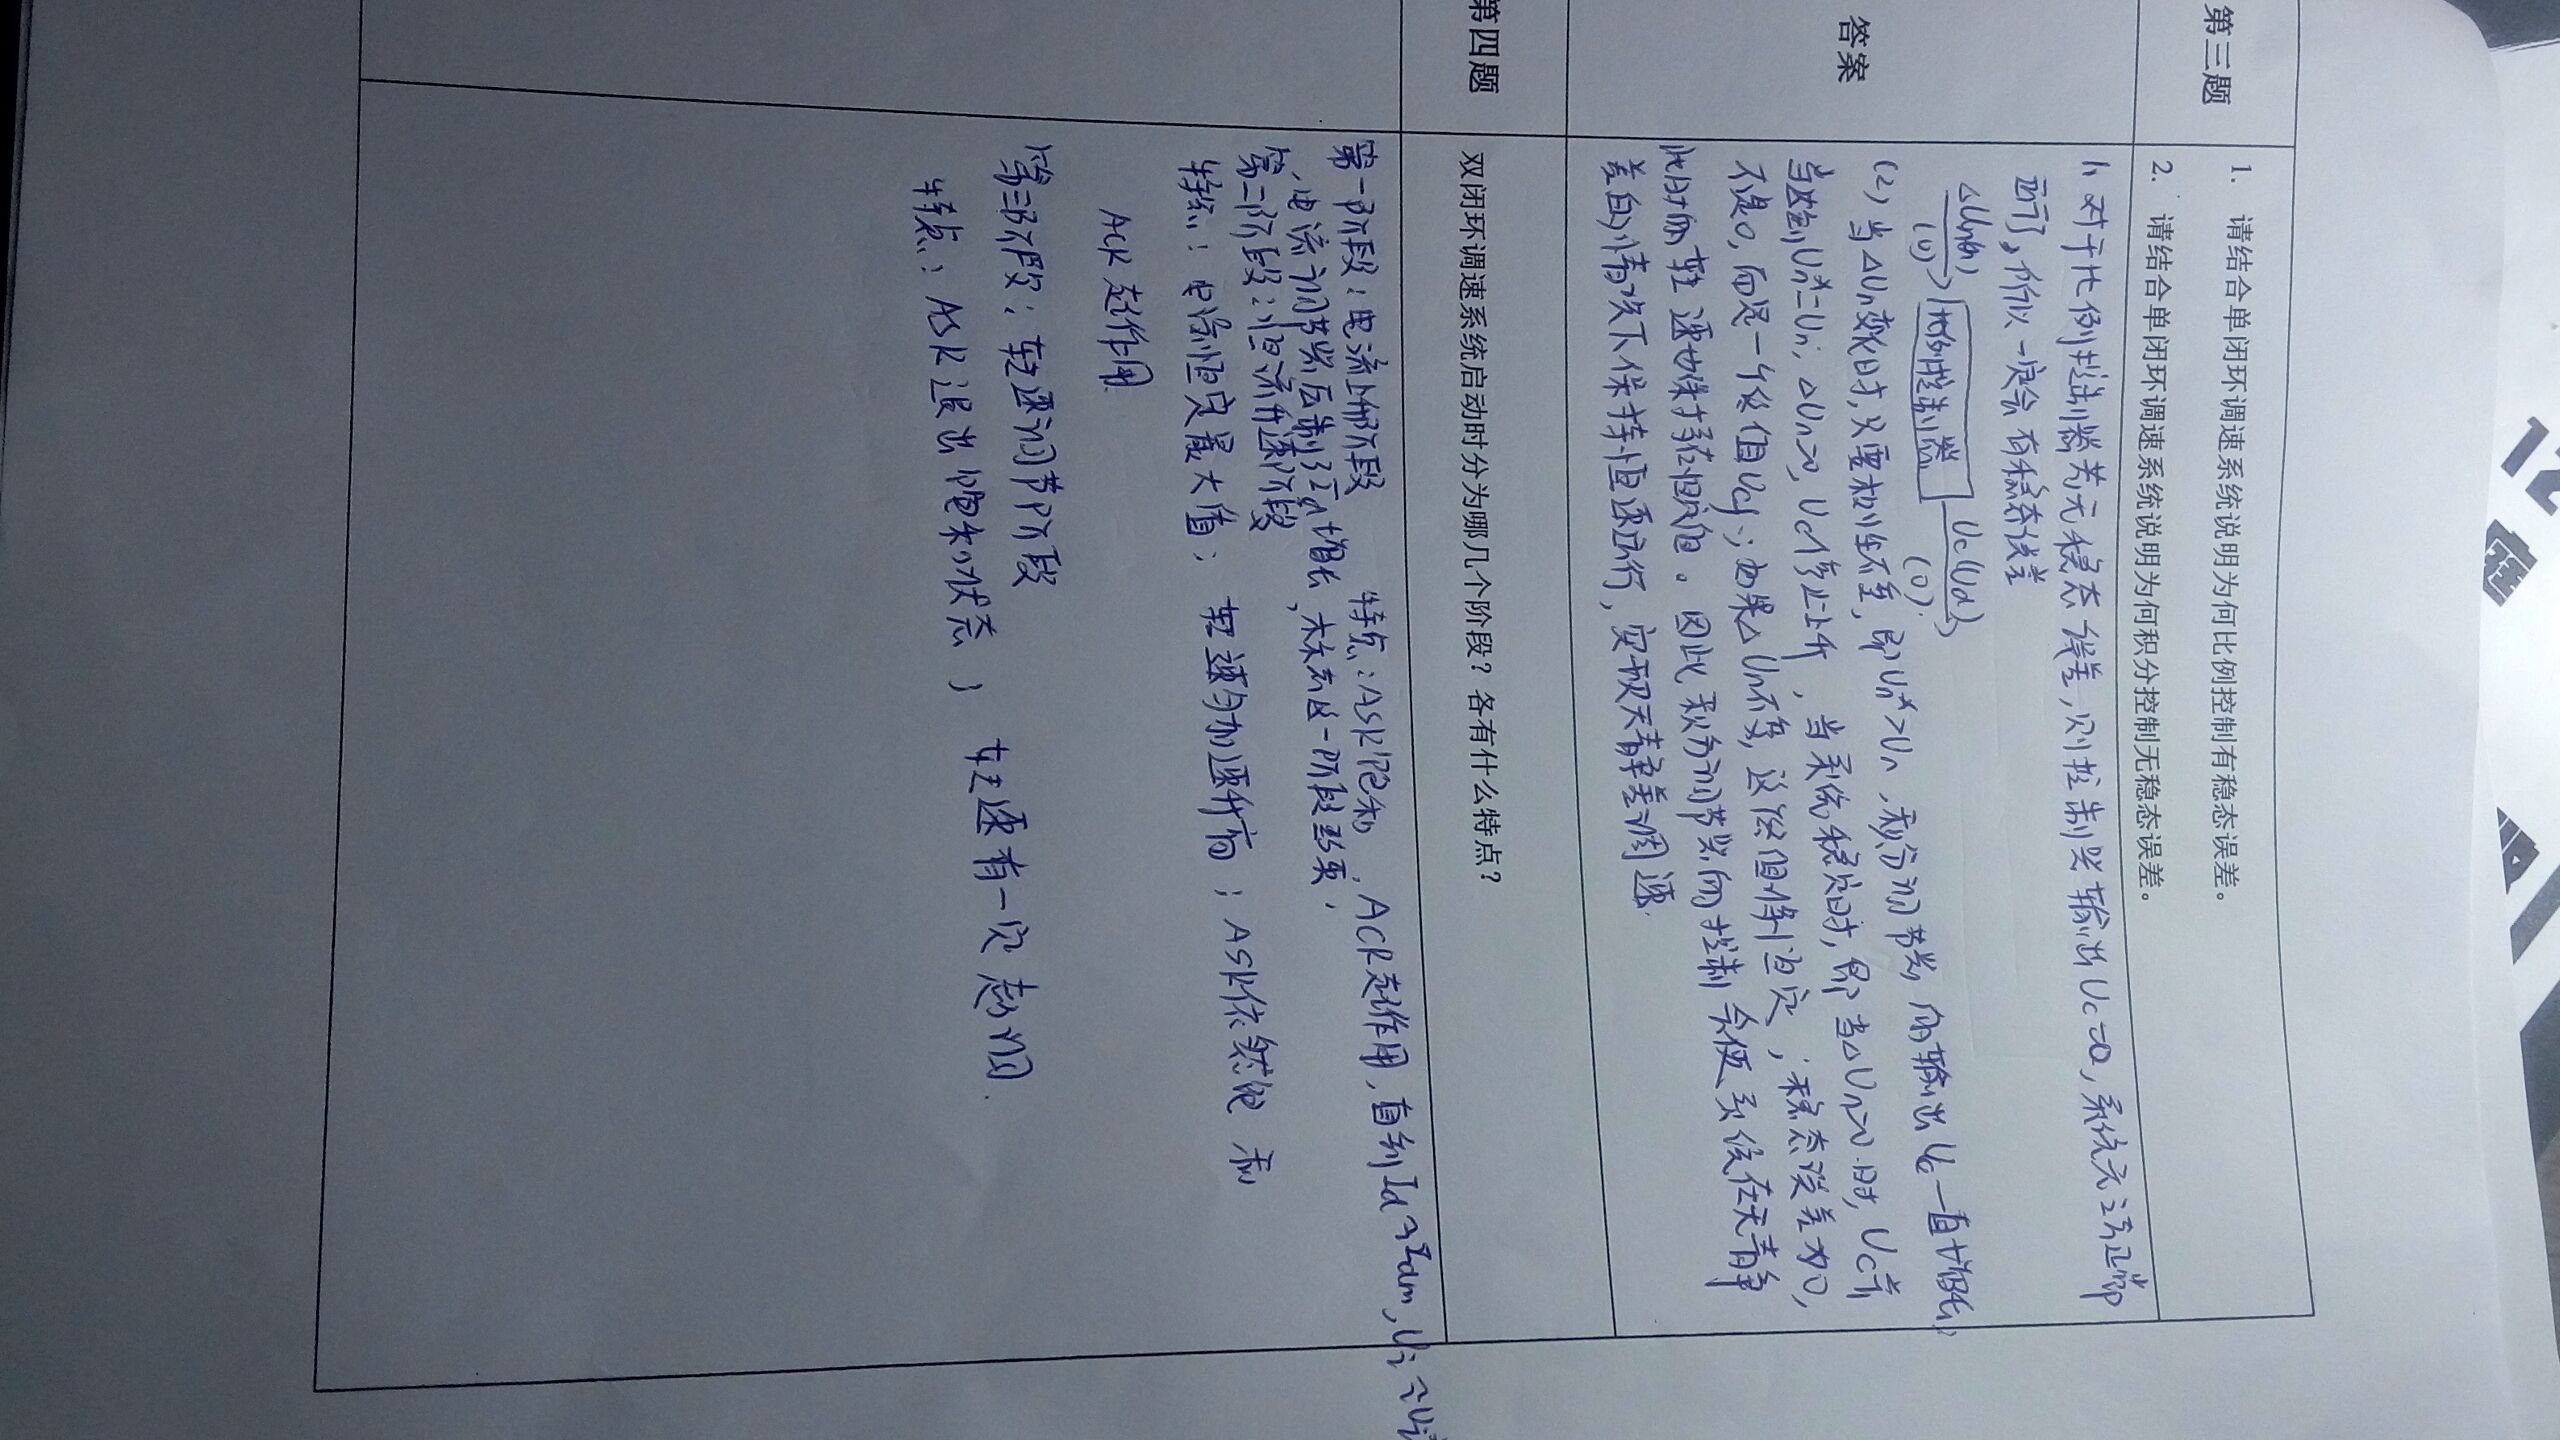 第三题
1. 请结合单闭环调速系统说明为何比例控制有稳态误差。
2. 请结合单闭环调速系统说明为何积分控制无稳态误差。
答案
1、对于比例控制器若无稳态误差,则控制器输出Uc=0,系统无法正常
运行,所以一定会有稳态误差
比例控制器
Uc(Ud)
(0)
(2)当ΔUn变化时,只要极性不变,即Un*>Un,积分调节器的输出Uc一直增长,
当达到Un*=Un,ΔUn=0,Uc停止上升,当系统稳定时,即当ΔUn=0时,Uc并
不是0,而是一个终值Ucf;如果ΔUn不变,这终值保持恒定,稳态误差为0,
此时的转速也保持在恒定值。因此积分调节器的控制会使系统在无静
差的情况下保持恒速运行,实现无静差调速.
第四题
双闭环调速系统启动时分为哪几个阶段?各有什么特点?
第一阶段:电流上升阶段 特点:ASR饱和,ACR起作用,直到Id→Idm,Ui→Ui
电流调节器压制了Id增长,标志这一阶段结束,
第二阶段:恒流升速阶段
特点:电流恒定最大值; 转速匀加速升高;ASR依然饱和
ACR起作用
第三阶段:转速调节阶段
特点:ASR退出饱和状态; 转速有一定超调.
12